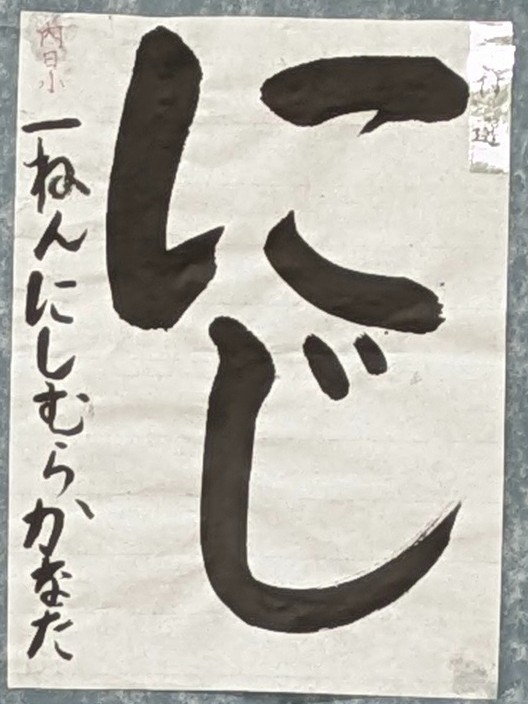 特選
にじ
一ねんにしむらかなた
内日小